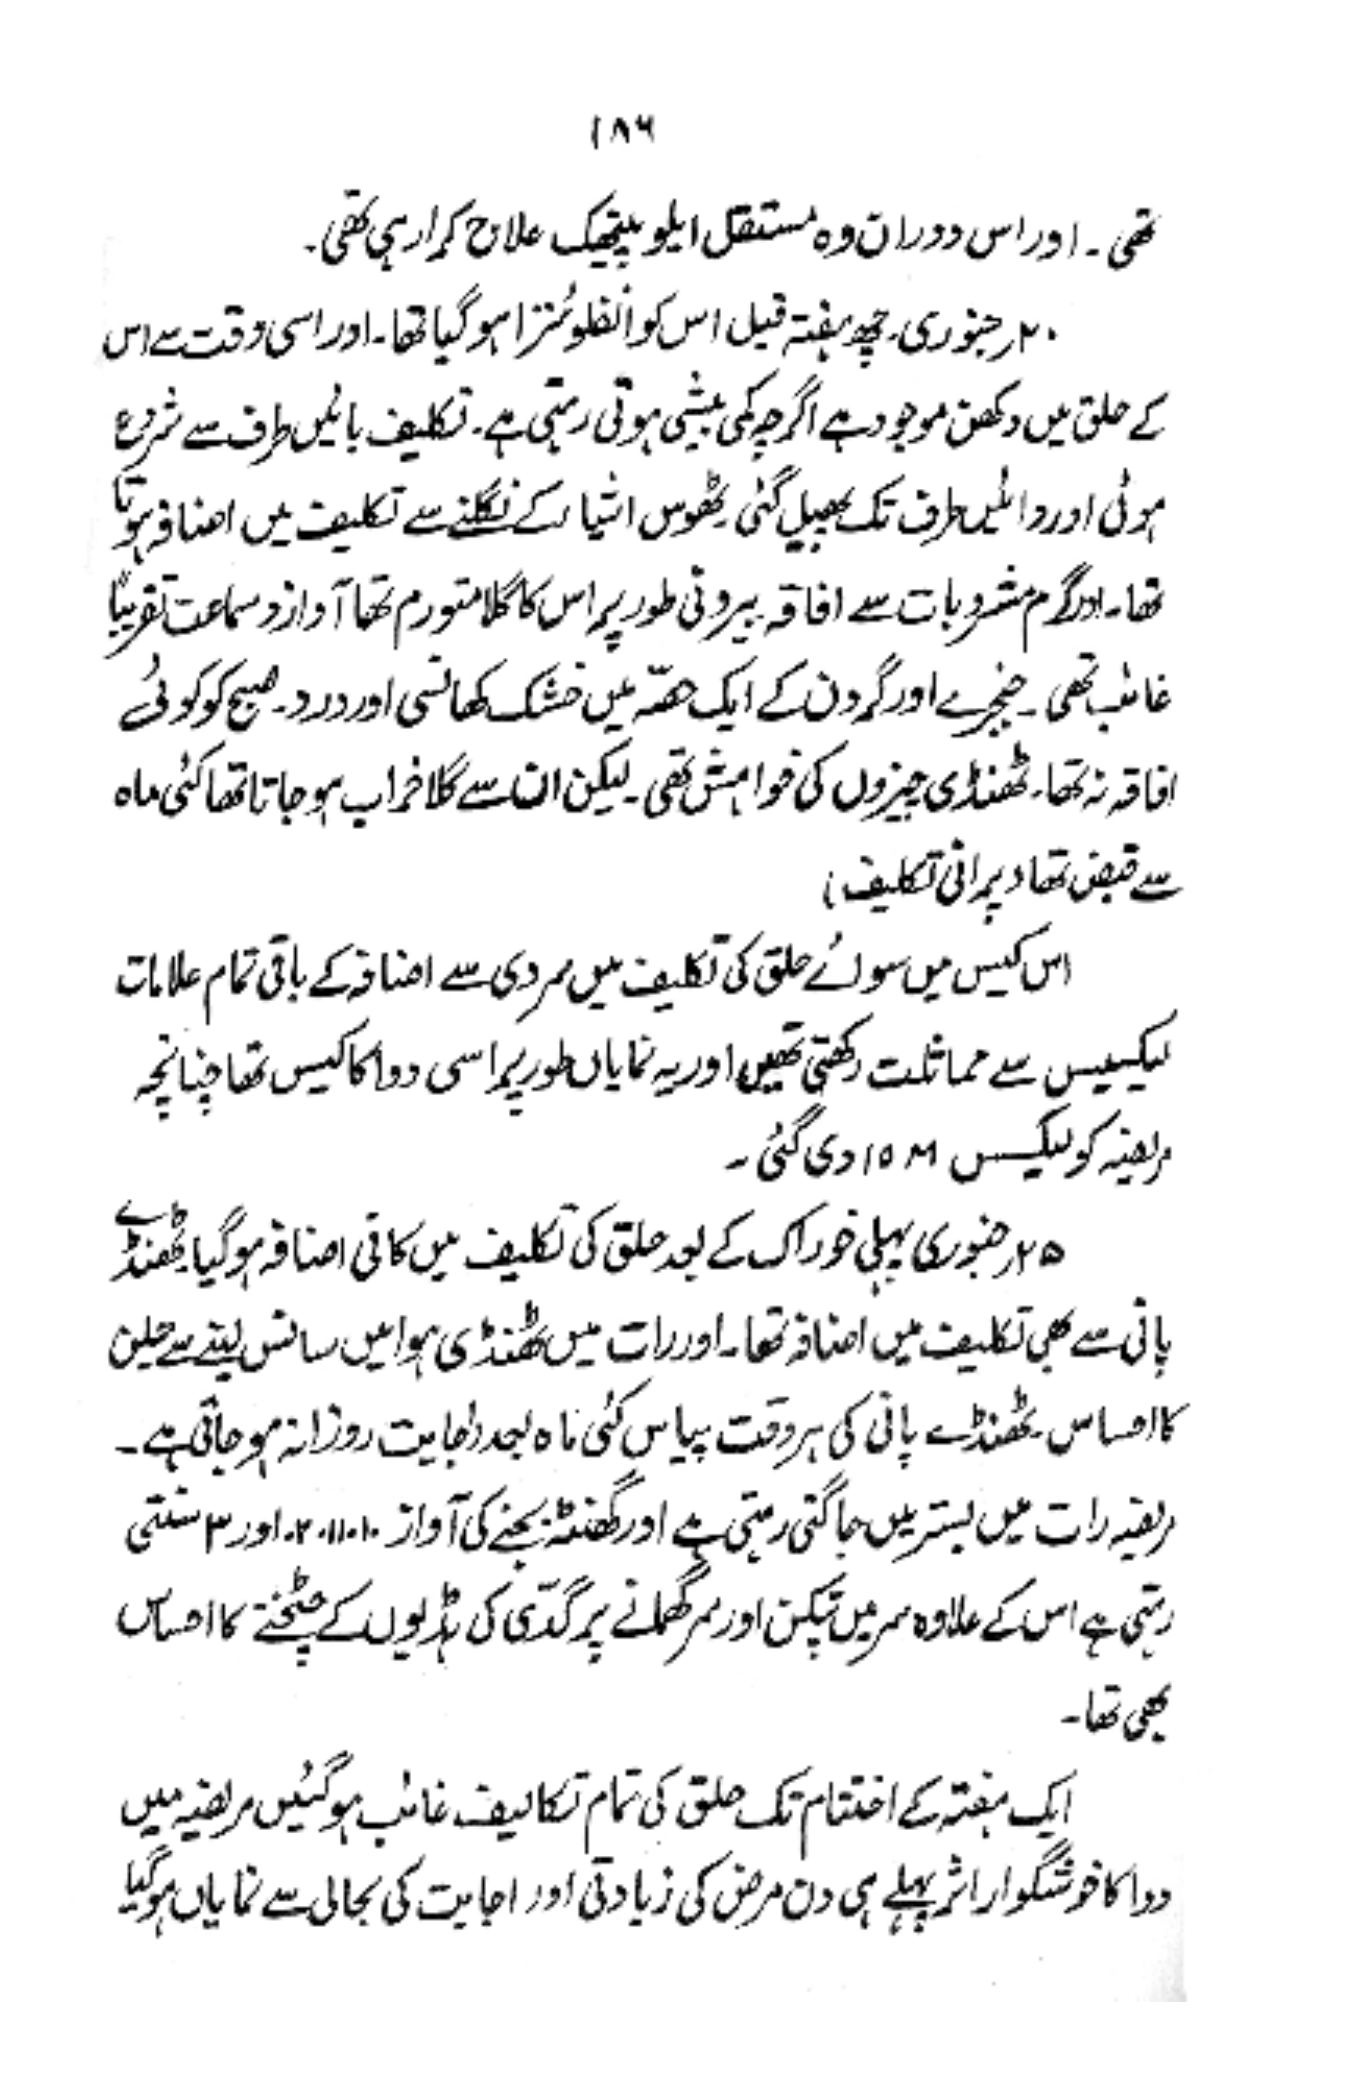 ۱۸۶
تھی ۔ اور اس دوران وہ مستقل ایلوپیتھیک علاج کرا رہی تھی ۔
۲۰ر جنوری ۔ چھ ہفتہ قبل اس کو انفلوئنزا ہو گیا تھا ۔ اور اسی وقت سے اس
کے حلق میں دکھن موجود ہے اگرچہ کمی بیشی ہوتی رہتی ہے ۔ تکلیف بائیں طرف سے شروع
ہوئی اور دائیں طرف تک پھیل گئی ۔ ٹھوس اشیاء کے نگلنے سے تکلیف میں اضافہ ہوتا
تھا ۔ اور گرم مشروبات سے افاقہ ۔ بیرونی طور پر اس کا گلا متورم تھا آواز و سماعت تقریباً
غائب تھی ۔ حنجرے اور گردن کے ایک حصّہ میں خشک کھانسی اور درد ۔ صبح کو کوئی
افاقہ نہ تھا ۔ ٹھنڈی چیزوں کی خواہش تھی ۔ لیکن ان سے گلا خراب ہو جاتا تھا کئی ماہ
سے قبض تھا (پرانی تکلیف)
اس کیس میں سوائے حلق کی تکلیف میں سردی سے اضافہ کے باقی تمام علامات
لیکیسیس سے مماثلت رکھتی تھیں اور یہ نمایاں طور پر اسی دوا کا کیس تھا چنانچہ
مریضہ کو لیکسس دی گئی ۔
۲۵ر جنوری پہلی خوراک کے بعد حلق کی تکلیف میں کافی اضافہ ہو گیا ٹھنڈے
پانی سے بھی تکلیف میں اضافہ تھا ۔ اور رات میں ٹھنڈی ہوا میں سانس لینے سے جلن
کا احساس ۔ ٹھنڈے پانی کی ہر وقت پیاس کئی ماہ بعد اجابت روزانہ ہو جاتی ہے ۔
مریضہ رات میں بستر میں جاگتی رہتی ہے اور گھنٹہ بجنے کی آواز ۱۰۔۱۱۔۲۔ اور ۳ سنتی
رہتی ہے اس کے علاوہ سر میں ٹپکن اور سر گھمانے پر گدّی کی ہڈیوں کے چٹخنے کا احساس
بھی تھا ۔
ایک ہفتہ کے اختتام تک حلق کی تمام تکالیف غائب ہو گئیں مریضہ میں
دوا کا خوشگوار اثر پہلے ہی دن مرض کی زیادتی اور اجابت کی بحالی سے نمایاں ہو گیا